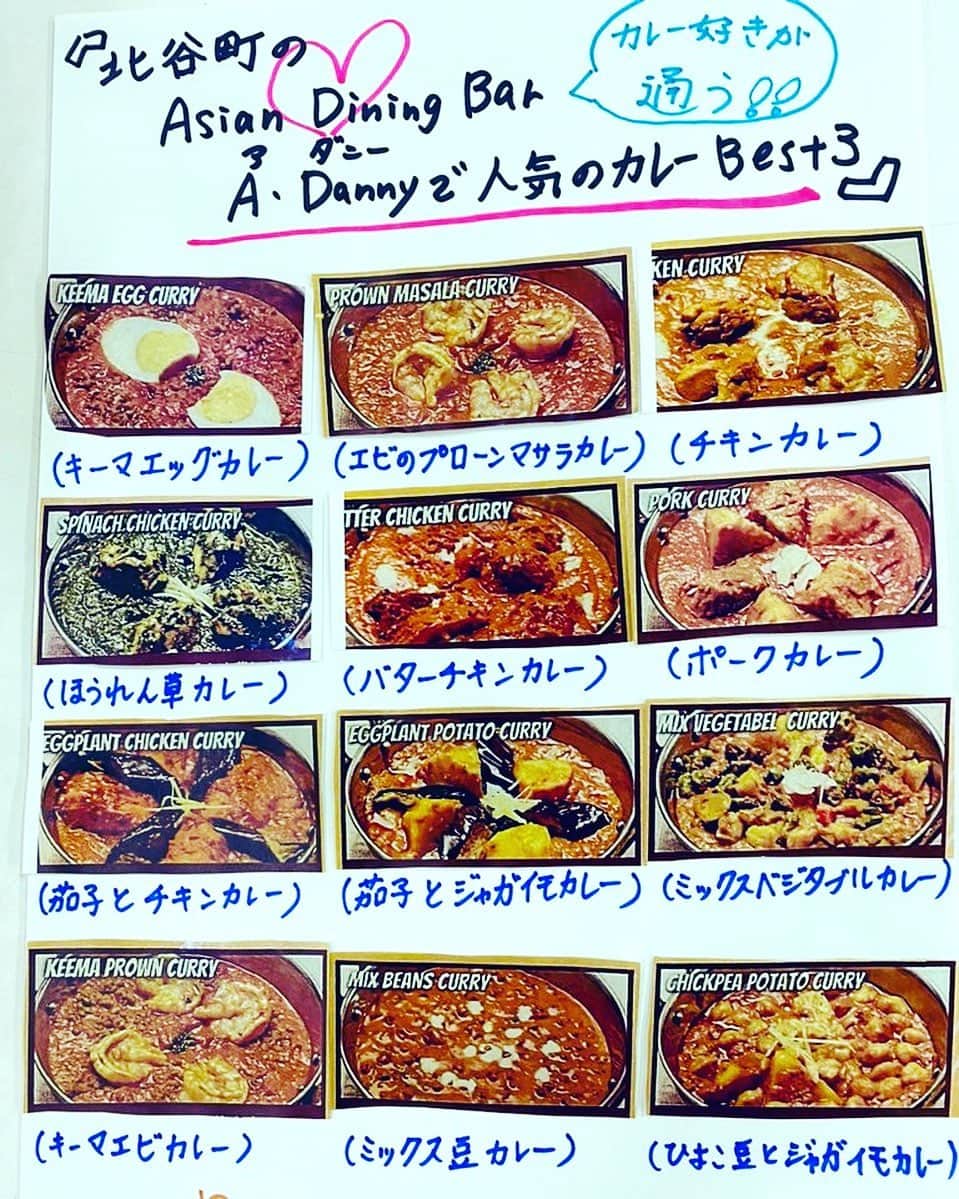 『北谷町の
Asian Dining Bar
ア ダニー
A・Dannyで人気のカレーBest3』
カレー好きが
通う!!
KEEMA EGG CURRY
PROWN MASALA CURRY
KEN CURRY
(キーマエッグカレー)
(エビのプローンマサラカレー)
(チキンカレー)
SPINACH CHICKEN CURRY
TTER CHICKEN CURRY
PORK CURRY
(ほうれん草カレー)
(バターチキンカレー)
(ポークカレー)
EGGPLANT CHICKEN CURRY
EGGPLANT POTATO CURRY
MIX VEGETABEL CURRY
(茄子とチキンカレー)
(茄子とジャガイモカレー)
(ミックスベジタブルカレー)
KEEMA PROWN CURRY
MIX BEANS CURRY
CHICKPEA POTATO CURRY
(キーマエビカレー)
(ミックス豆カレー)
(ひよこ豆とジャガイモカレー)